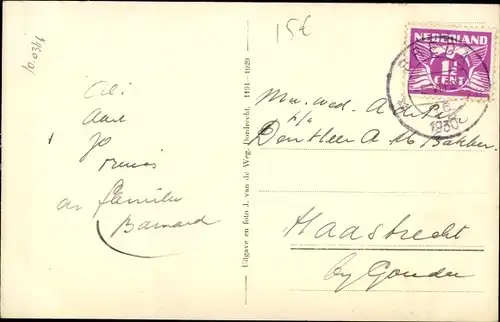 10.03/16
15€
Ali
Aart
Jo
en familie
Barnard
Uitgave en foto J. van de Weg, Dordrecht. 1101-1929
NEDERLAND
1½
CENT
1930
Mw. wed. A de
p/a
Den Heer A M Bakker.
Haastrecht
by Gouda